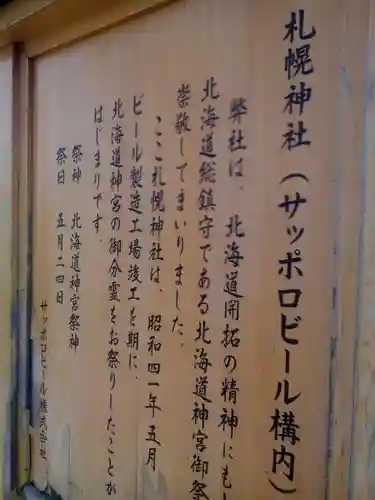 札幌神社(サッポロビール構内)
弊社は、北海道開拓の精神にも
北海道総鎮守である北海道神宮御祭
崇敬してまいりました。
ここ札幌神社は、昭和四一年五月
ビール製造工場竣工を期に、
北海道神宮の御分霊をお祭りしたことが
はじまりです。
祭神 北海道神宮祭神
祭日 五月二四日
サッポロビール株式会社